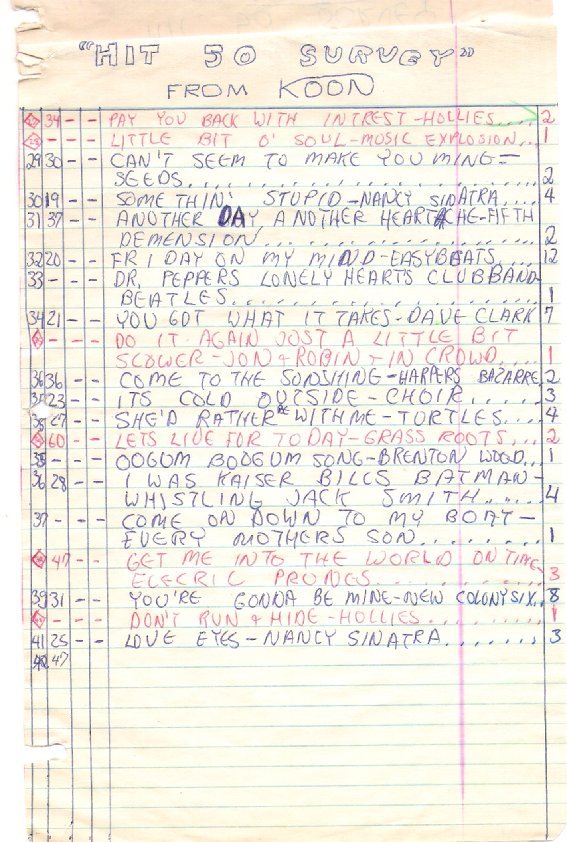 "HIT 50 SURVEY"
FROM KOON
34 - - PAY YOU BACK WITH INTREST - HOLLIES.... 2
- - LITTLE BIT O' SOUL - MUSIC EXPLOSION.... 1
29 30 - - CAN'T SEEM TO MAKE YOU MING =
SEEDS............................ 2
30 19 - - SOME THIN' STUPID - NANCY SINATRA.... 4
31 37 - - ANOTHER DAY, ANOTHER HEARTACHE - FIFTH
DEMENSION........................ 2
32 20 - - FRIDAY ON MY MIND - EASYBEATS.... 12
33 - - - DR. PEPPERS LONELY HEARTS CLUB BAND
BEATLES.......................... 1
34 21 - - YOU GOT WHAT IT TAKES - DAVE CLARK 7
- - - DO IT AGAIN JUST A LITTLE BIT
SLOWER - JON + ROBIN + IN CROWD.... 1
36 36 - - COME TO THE SONSHING - HARPERS BAZARRE, 2
23 - - ITS COLD OUTSIDE - CHOIR...... 3
27 - - SHE'D RATHER BE WITH ME - TURTLES.... 4
60 - - LETS LIVE FOR TODAY - GRASS ROOTS... 2
35 - - - OOGUM BOOGUM SONG - BRENTON WOOD... 1
36 28 - - I WAS KAISER BILLS BATMAN -
WHISTLING JACK SMITH..... 4
37 - - - COME ON DOWN TO MY BOAT -
EVERY MOTHERS SON........ 1
47 - - GET ME INTO THE WORLD ON TIME -
ELECRIC PRUNES............... 3
39 31 - - YOU'RE GONNA BE MINE - NEW COLONY SIX.. 8
- - - DON'T RUN + HIDE - HOLLIES........ 1
41 25 - - LOVE EYES - NANCY SINATRA....... 3
42 47